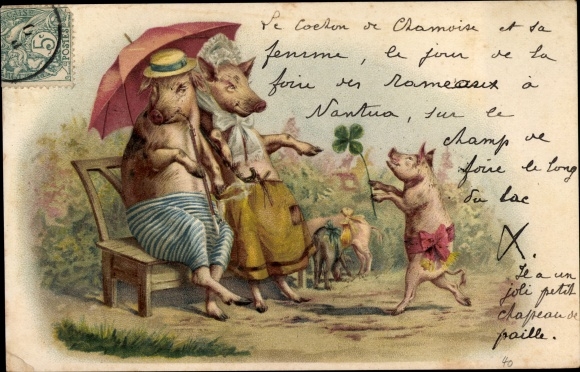 Le Cochon de Chamoise et sa
femme, le jour de la
foire des Rameaux à
Nantua, sur le
champ de
foire le long
du lac
X.
Il a un
joli petit
chapeau de
paille.
5
POSTES
40